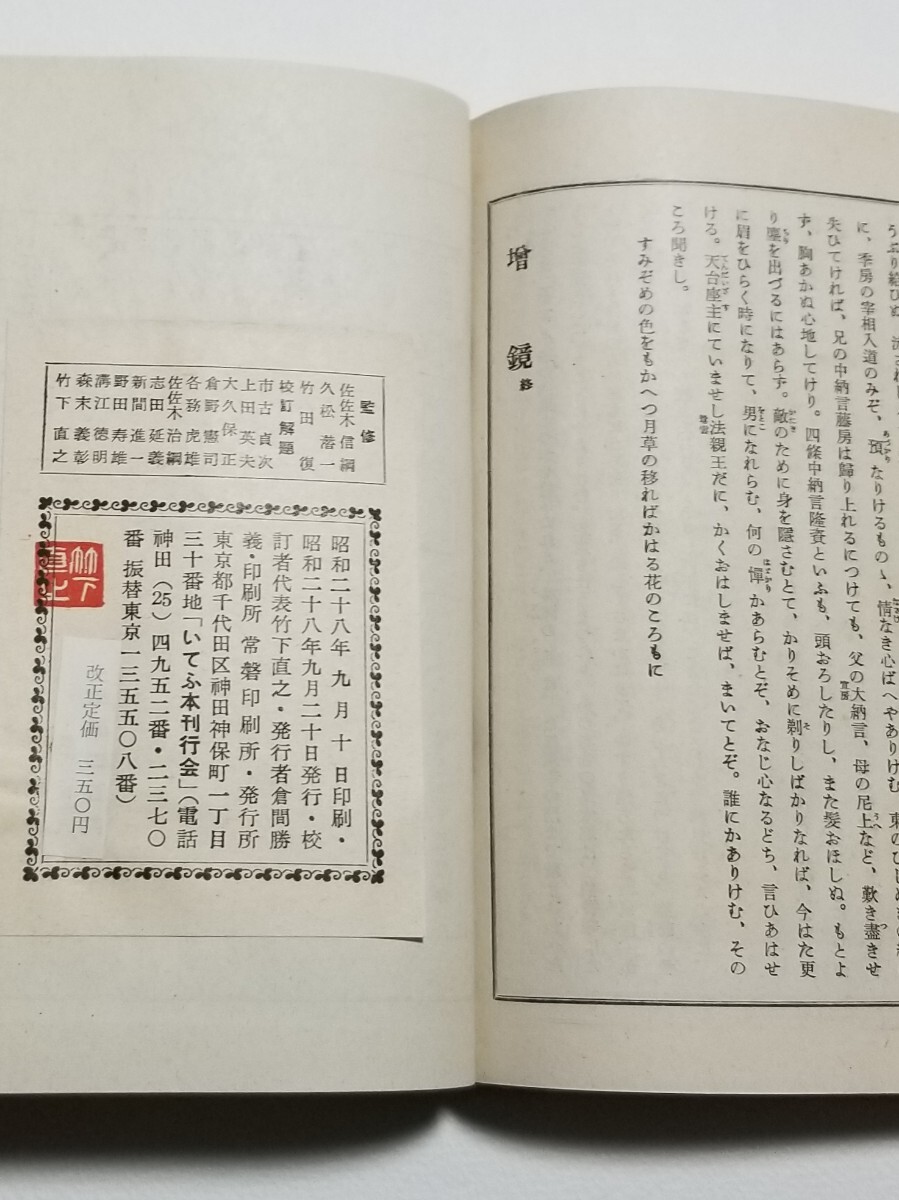 に、季房の宰相入道のみぞ、預なりけるものゝ、情なき心ばへやありけむ、東のひし
失ひてければ、兄の中納言藤房は歸り上れるにつけても、父の大納言、母の尼上など、歎き盡きせ
ず、胸あかぬ心地してけり。四條中納言隆資といふも、頭おろしたりし、また髪おほしぬ。もとよ
り塵を出づるにはあらず。敵のために身を隱さむとて、かりそめに剃りしばかりなれば、今はた更
に眉をひらく時になりて、男になれらむ、何の憚かあらむとぞ、おなじ心なるどち、言ひあはせ
ける。天台座主にていませし法親王だに、かくおはしませば、まいてとぞ。誰にかありけむ、その
ころ聞きし。
すみぞめの色をもかへつ月草の移ればかはる花のころもに
增鏡 終
監修
佐佐木信綱
久松潜一
竹田復
校訂解題
市古貞次
上田英夫
大久保正
倉野憲司
各務虎雄
佐佐木治綱
志田延義
新間進一
野田寿雄
溝江徳明
森末義彰
竹下直之
昭和二十八年九月十日印刷・
昭和二十八年九月二十日発行・校
訂者代表竹下直之・発行者倉間勝
義・印刷所 常磐印刷所・発行所
東京都千代田区神田神保町一丁目
三十番地「いてふ本刊行会」(電話
神田(25)四九五二番・二三七〇
番 振替東京一三五五〇八番)
竹下直之
改正定価 三五〇円